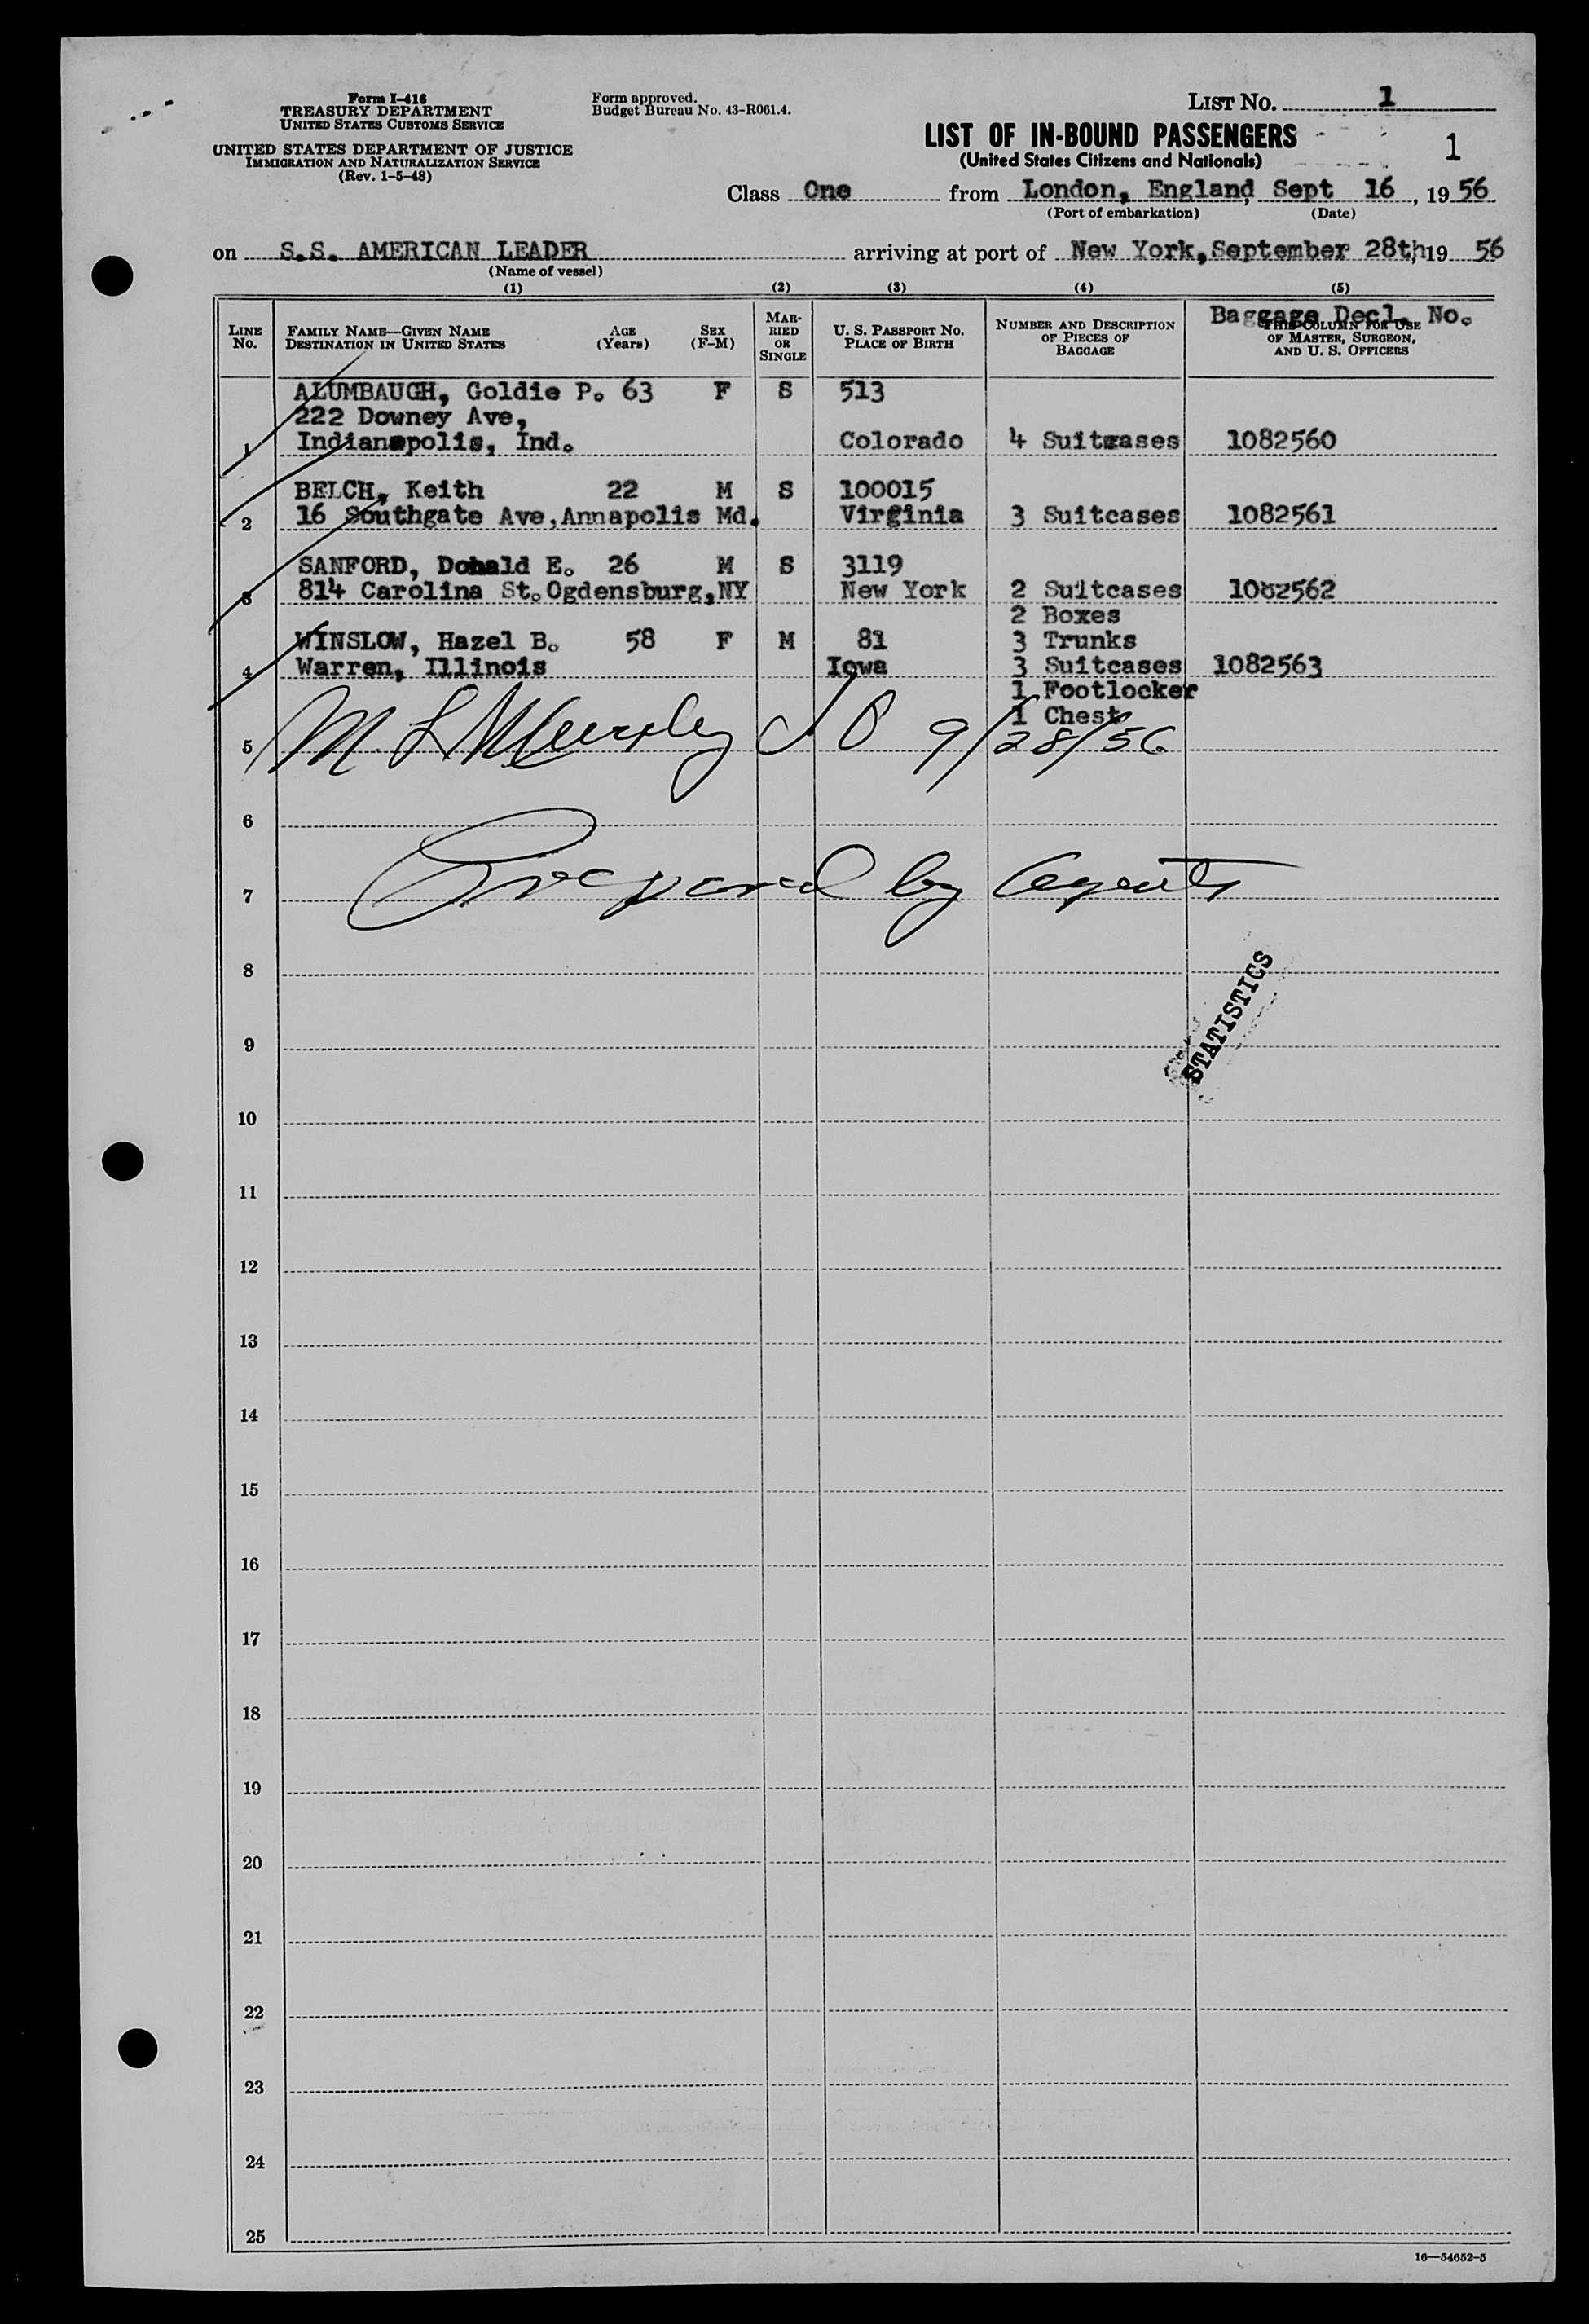 Form I-416
TREASURY DEPARTMENT
UNITED STATES CUSTOMS SERVICE
UNITED STATES DEPARTMENT OF JUSTICE
IMMIGRATION AND NATURALIZATION SERVICE
(Rev. 1-5-48)
Form approved.
Budget Bureau No. 43-R061.4.
LIST NO. 1
LIST OF IN-BOUND PASSENGERS
(United States Citizens and Nationals)
1
Class One from London, England, Sept 16, 1956
(Port of embarkation) (Date)
on S.S. AMERICAN LEADER arriving at port of New York, September 28th, 19 56
(Name of vessel)
(1) (2) (3) (4) (5)
LINE NO.
FAMILY NAME—GIVEN NAME
DESTINATION IN UNITED STATES
AGE (Years)
SEX (F-M)
MARRIED OR SINGLE
U. S. PASSPORT NO.
PLACE OF BIRTH
NUMBER AND DESCRIPTION OF PIECES OF BAGGAGE
Baggage Decl. No.
THIS COLUMN FOR USE OF MASTER, SURGEON, AND U. S. OFFICERS
ALUMBAUGH, Goldie P. 63 F S 513
222 Downey Ave,
1 Indianapolis, Ind. Colorado 4 Suitcases 1082560
BELCH, Keith 22 M S 100015
2 16 Southgate Ave, Annapolis Md. Virginia 3 Suitcases 1082561
SANFORD, Donald E. 26 M S 3119
3 814 Carolina St. Ogdensburg, NY New York 2 Suitcases 1082562
2 Boxes
WINSLOW, Hazel B. 58 F M 81 3 Trunks
4 Warren, Illinois Iowa 3 Suitcases 1082563
1 Footlocker
1 Chest
5 9/28/56
6
7 Prepared by Agents
8
STATISTICS
9
10
11
12
13
14
15
16
17
18
19
20
21
22
23
24
25
16—54652-5